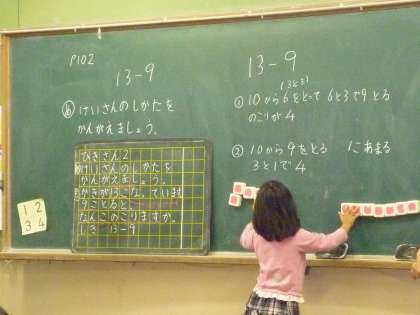 P102
13-9
め けいさんのしかたを
かんがえましょう。
ひきざん2
めけいさんのしかたを
かんがえましょう。
かきが13こなっています
9ことると
なんこのこりますか。
しき 13-9
1 2
3 4
13-9
(3と3)
① 10から6をとって 6と3で9とる
のこりが4
② 10から9をとる 1にあまる
3と1で4